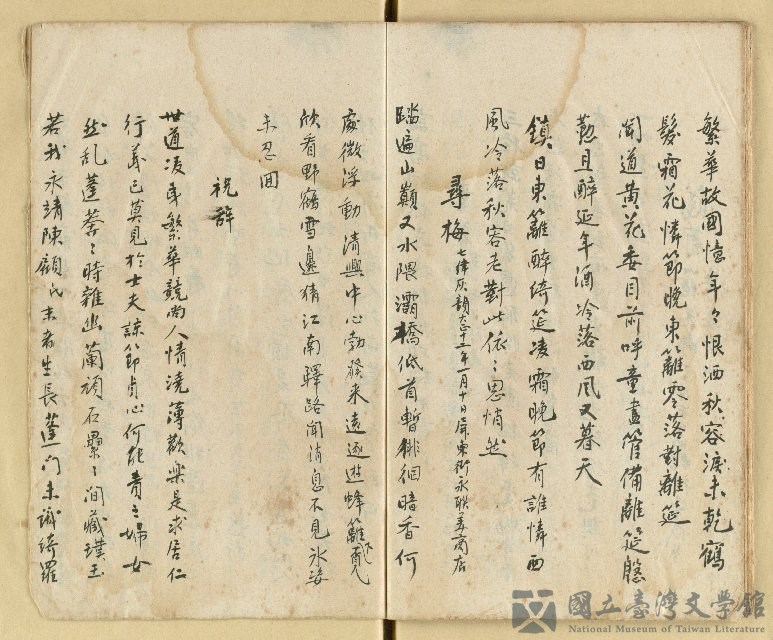 繁華故國憶年々恨洒秋容淚未乾鶴
髮霜花憐節晚東籬零落對離筵
聞道黃花委目前呼童盡管備離筵慇
懃且醉延年酒冷落西風又暮天
鎮日東籬醉綺筵凌霜晚節有誰憐西
風冷落秋容老對此依〻思悄然
尋梅 七律灰韻大正十二年一月十日屏東街永联美商店
踏遍山巔又水隈灞橋低首暫徘徊暗香何
處微浮動清興中心勃發來遠逐遊蜂籬下覓
欣看野鶴雪邊猜江南驛路聞消息不見氷姿
未忍回
祝辞
世道凌夷繁華競尚人情澆薄歡樂是求居仁
行義已莫見於士夫諒節貞心何能責之婦女
然乱蓬蓁〻時雜幽蘭頑石纍〻間藏璞玉
若我永靖陳顧氏未者生長蓬門未識綺羅
國立臺灣文學館
National Museum of Taiwan Literature